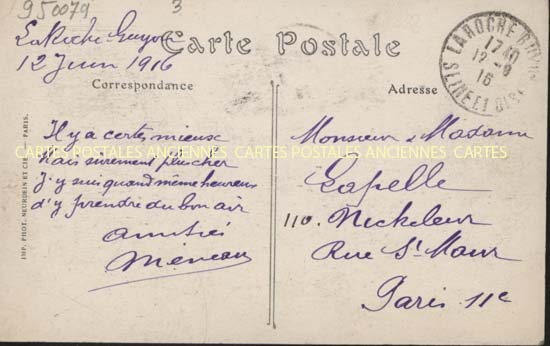 950079
3
LaRoche-Guyon
12 Juin 1916
Carte Postale
Correspondance
Adresse
LA ROCHE GUYON
17 40
12 - 6
16
SEINE ET OISE
Il y a certes mieux
Mais sûrement plus cher
J'y suis quand même heureux
d'y prendre du bon air
Amitiés
Monsieur & Madame
Capelle
110. Nickeleur
Rue St Maur
Paris 11e
CARTES POSTALES ANCIENNES CARTES POSTALES ANCIENNES CARTES POSTALES ANCIENNES
IMP. PHOT. NEURDEIN ET CIE. PARIS.